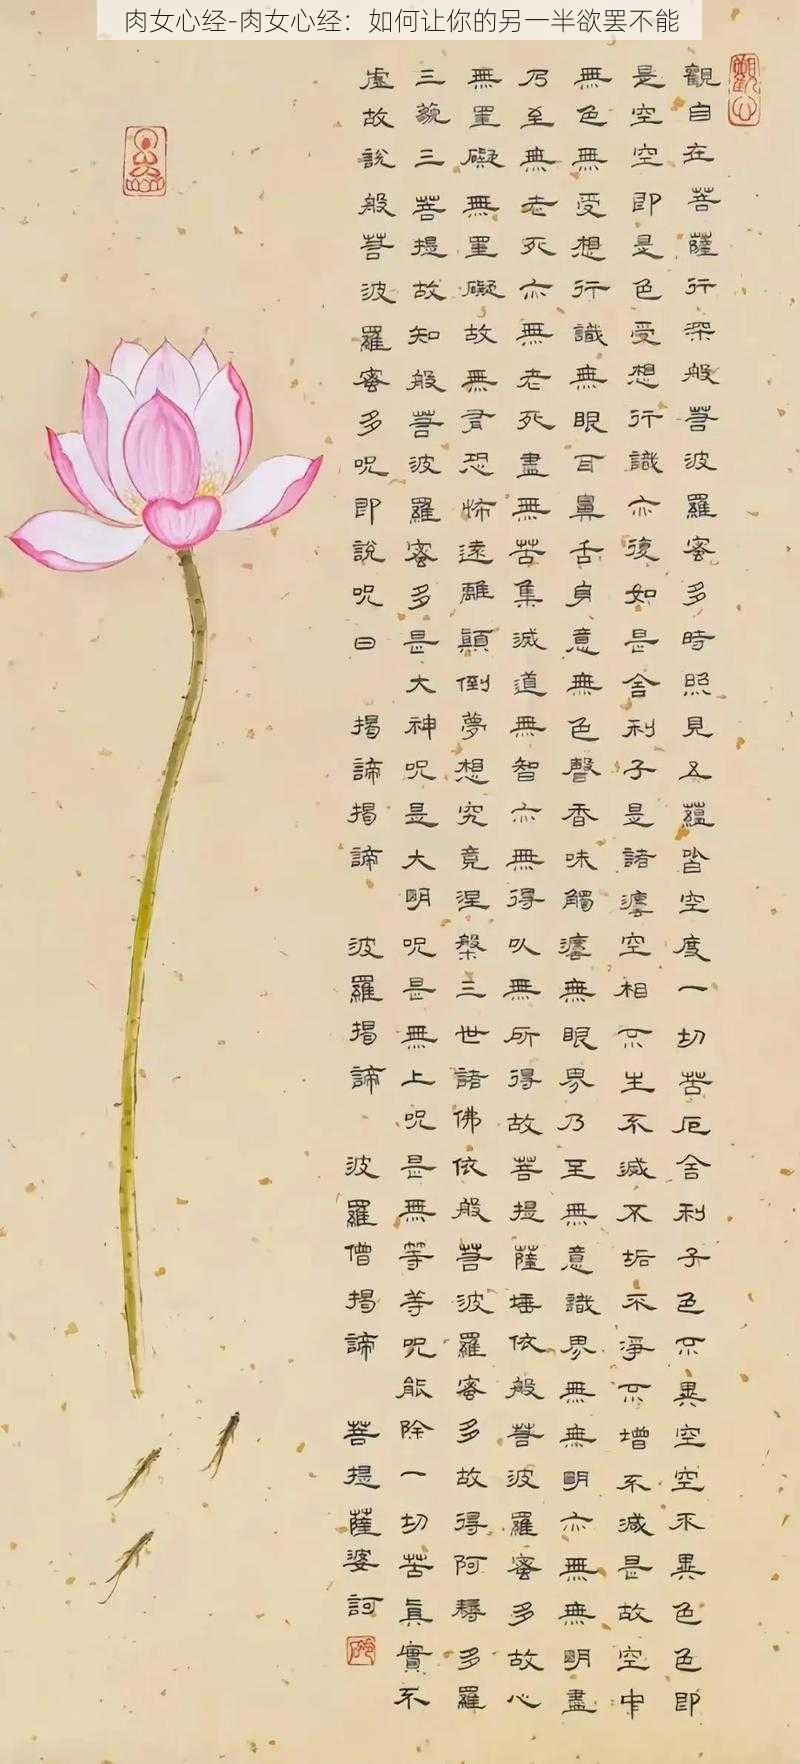 肉女心经-肉女心经：如何让你的另一半欲罢不能
觀自在菩薩行深般若波羅蜜多時照見五蘊皆空度一切苦厄舍利子色不異空空不異色色即
是空空即是色受想行識亦復如是舍利子是諸灋空相不生不滅不垢不淨不增不減是故空中
無色無受想行識無眼耳鼻舌身意無色聲香味觸灋無眼界乃至無意識界無無明亦無無明盡
乃至無老死亦無老死盡無苦集滅道無智亦無得以無所得故菩提薩埵依般若波羅蜜多故心
無罣礙無罣礙故無有恐怖遠離顛倒夢想究竟涅槃三世諸佛依般若波羅蜜多故得阿耨多羅
三藐三菩提故知般若波羅蜜多是大神呪是大明呪是無上呪是無等等呪能除一切苦真實不
虛故說般若波羅蜜多呪即說呪曰 揭諦揭諦 波羅揭諦 波羅僧揭諦 菩提薩婆訶